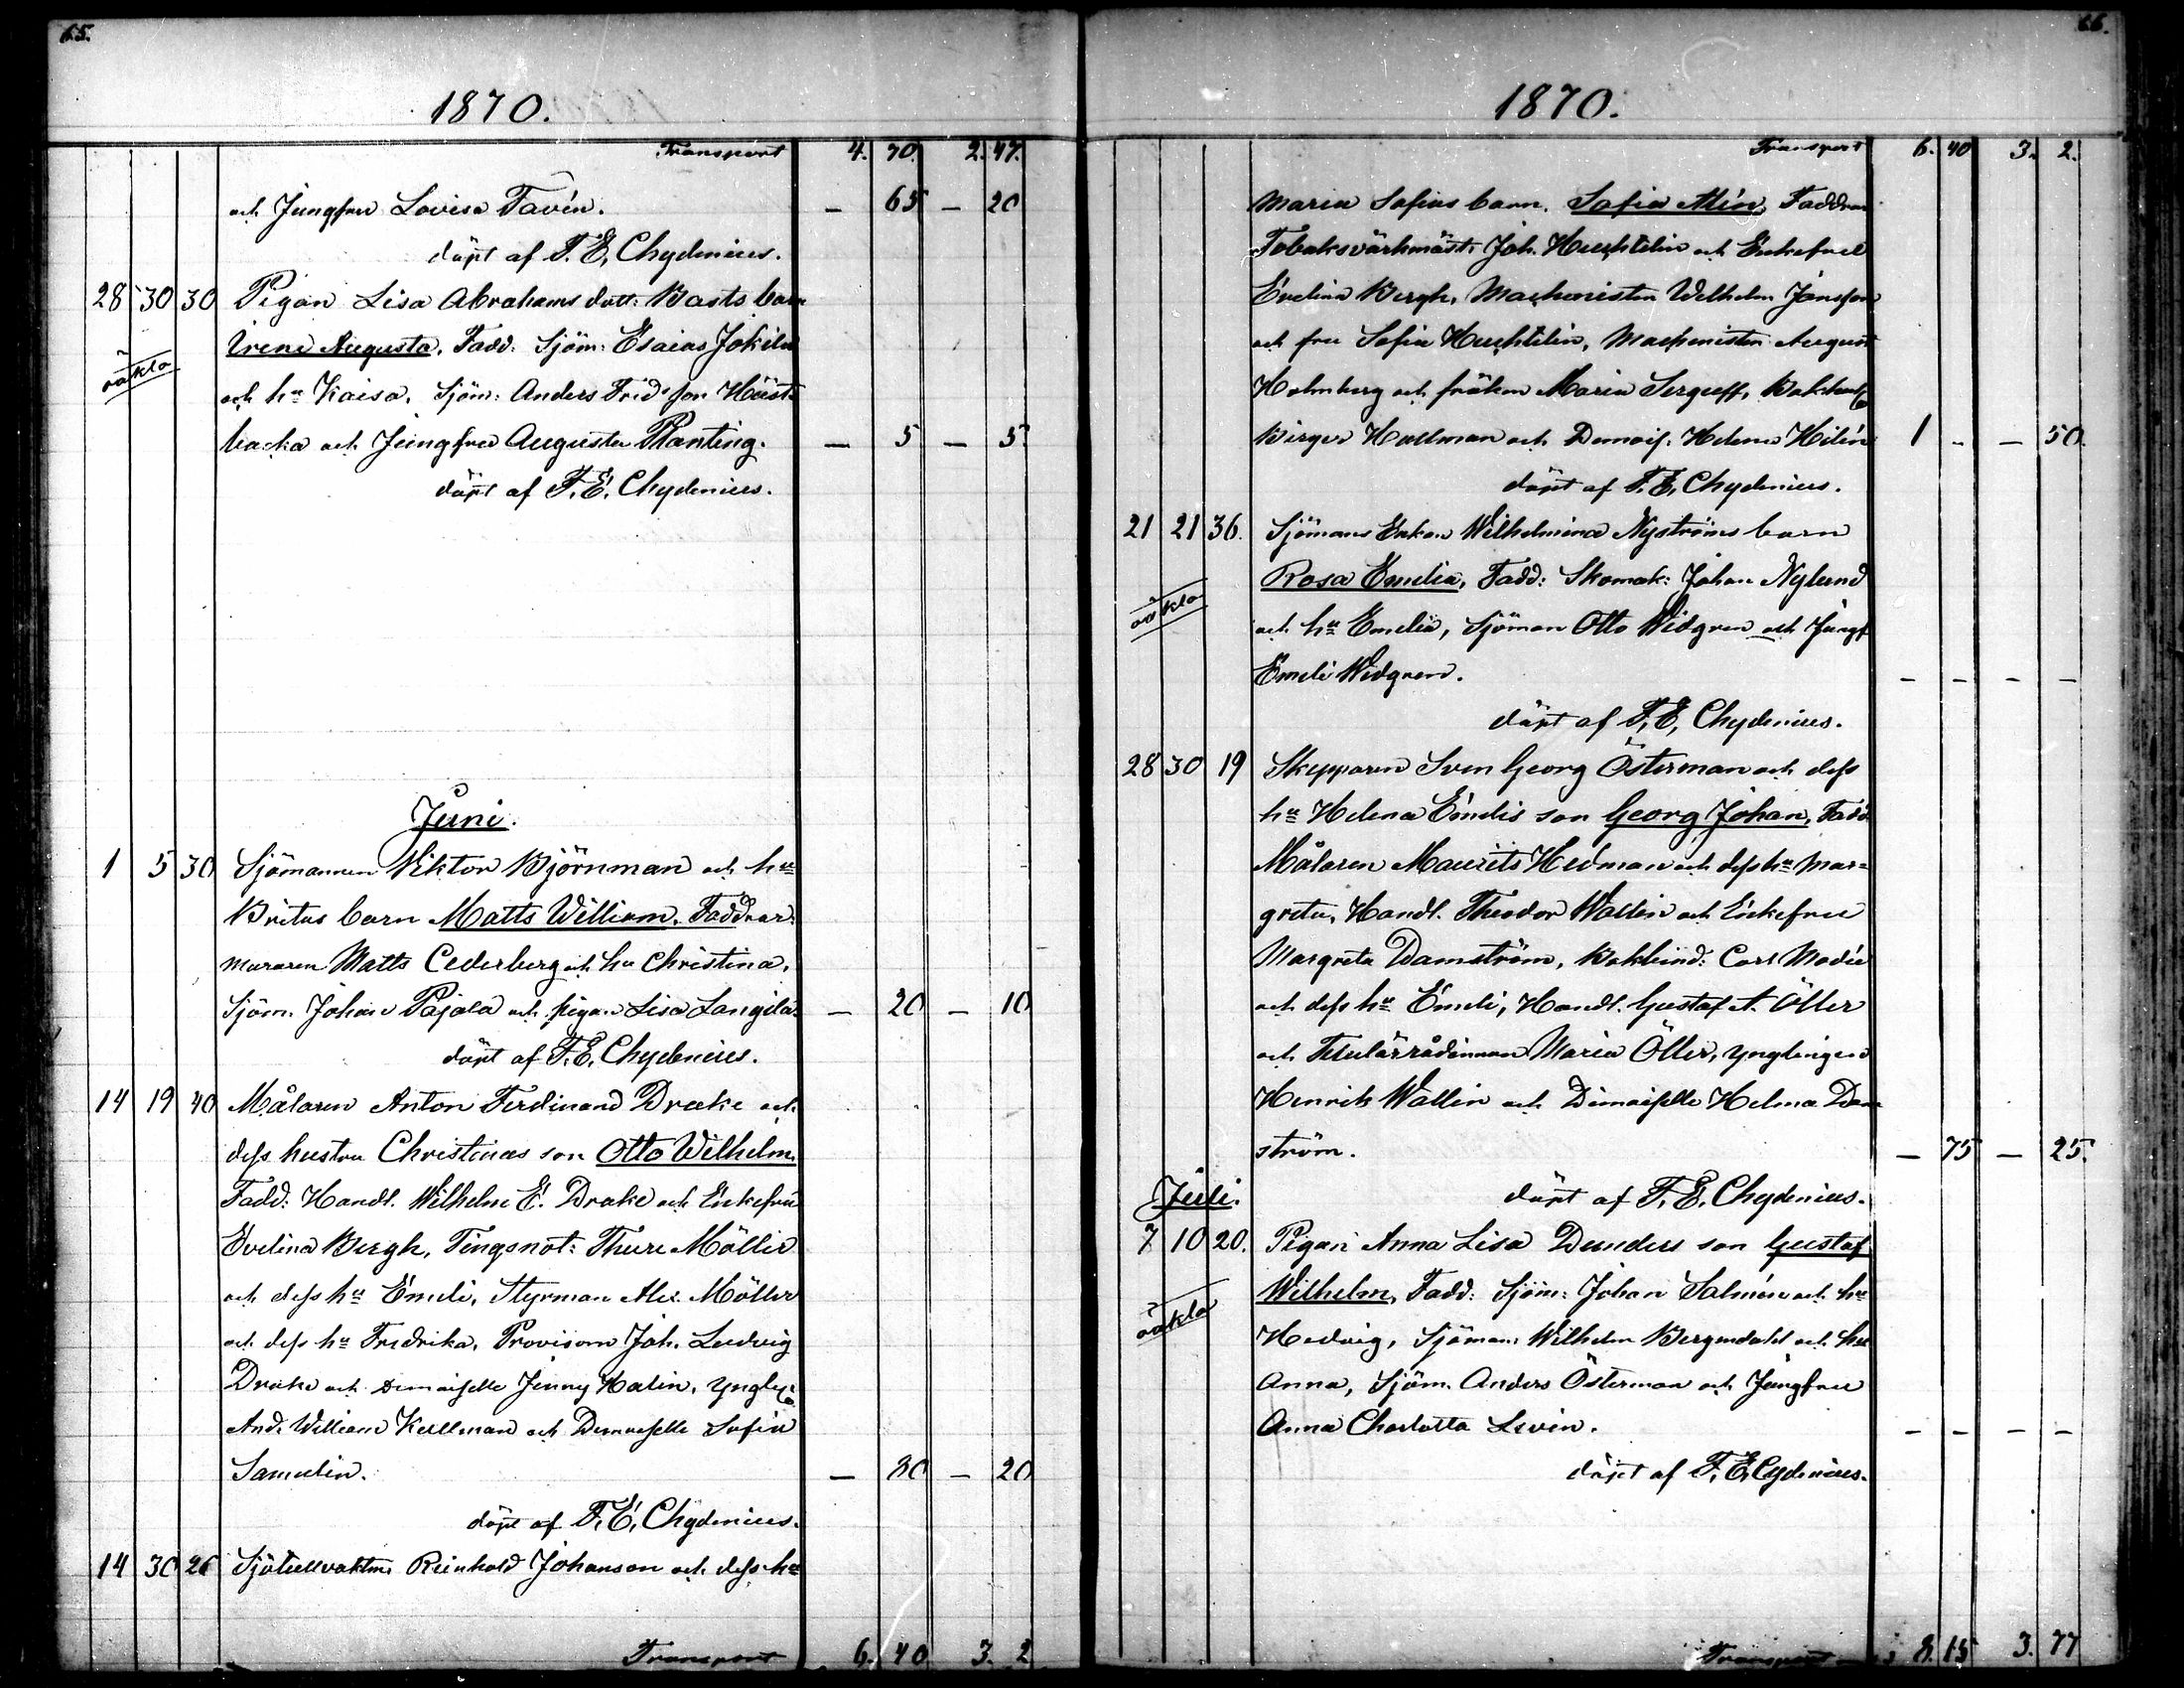 65.
1870.
Transport 4. 70. 2. 47.
och Jungfru Lovisa Tavén. — 65 — 20
döpt af F. E. Chydenius.
28 30 30 Pigan Lisa Abrahams dott: Basts barn
oäkta
Irene Augusta, Fadd: Sjöm: Esaias Jokila
och hu Kaisa, Sjöm: Anders Frid:son Häst-
backa och Jungfru Augusta Planting. — 5 — 5
döpt af F. E. Chydenius.
Juni.
1 5 30 Sjömannen Viktor Björnman och hus
Britas barn Matts William, Faddrar:
muraren Matts Cederberg och hu Christina,
Sjöm. Johan Pajala och pigan Lisa Langila. — 20 — 10
döpt af F. E. Chydenius.
14 19 40 Målaren Anton Ferdinand Drake och
dess hustru Christinas son Otto Wilhelm,
Fadd: Handl. Wilhelm E. Drake och Enkefru
Evelina Bergh, Tingsnot: Thure Möller
och dess hu Emeli, Styrman Alex. Möller
och dess hu Fredrika, Provisorn Joh. Ludvig
Drake och Demoiselle Jenny Halin, Yngl:
And. William Kullman och Demoiselle Sofia
Samulin. — 80 — 20
döpt af F. E. Chydenius.
14 30 26 Sjötullvaktm. Reinhold Johanson och dess hu
Transport 6. 40 3. 2
66.
1870.
Transport 6. 40 3. 2.
Maria Sofias barn, Sofia Alin, Faddrar
Tobaksvärkmäst: Joh. Huchtilin och Enkefru
Evelina Bergh, Machinisten Wilhelm Jansson
och fru Sofia Huchtilin, Machinisten August
Holmberg och fröken Maria Serguff,
Birger Hallman och Demois. Helena Hilén 1 - — 50.
döpt af F. E. Chydenius.
21 21 36. Sjömans Enkan Wilhelmina Nyströms barn
oäkta
Rosa Emelia, Fadd: Skomak: Johan Nylund
och hu Emelia, Sjöman Otto Widgren och Jungf
Emeli Widgren. — — — —
döpt af F. E. Chydenius.
28 30 19 Skepparen Sven Georg Österman och dess
hu Helena Emelis son Georg Johan, Fadd
Målaren Maurits Hedman och dess hu Mar-
greta, Handl. Theodor Wallin och Enkefru
Margreta Damström, Bokbind: Carl Modée
och dess hu Emeli, Handl. Gustaf A. Öller
och Titulärrådinnan Maria Öller, Ynglingen
Henrik Wallin och Demoiselle Helma Dam-
ström. — 75 — 25.
döpt af F. E. Chydenius.
Juli.
7 10 20. Pigan Anna Lisa Dunders son Gustaf
oäkta
Wilhelm, Fadd: Sjöm: Johan Salmén och hu
Hedvig, Sjöman Wilhelm Bergendahl och hu
Anna, Sjöm. Anders Österman och Jungfru
Anna Charlotta Levin. — — — —
döpt af F. E. Cydenius.
Transport 8. 15 3. 77